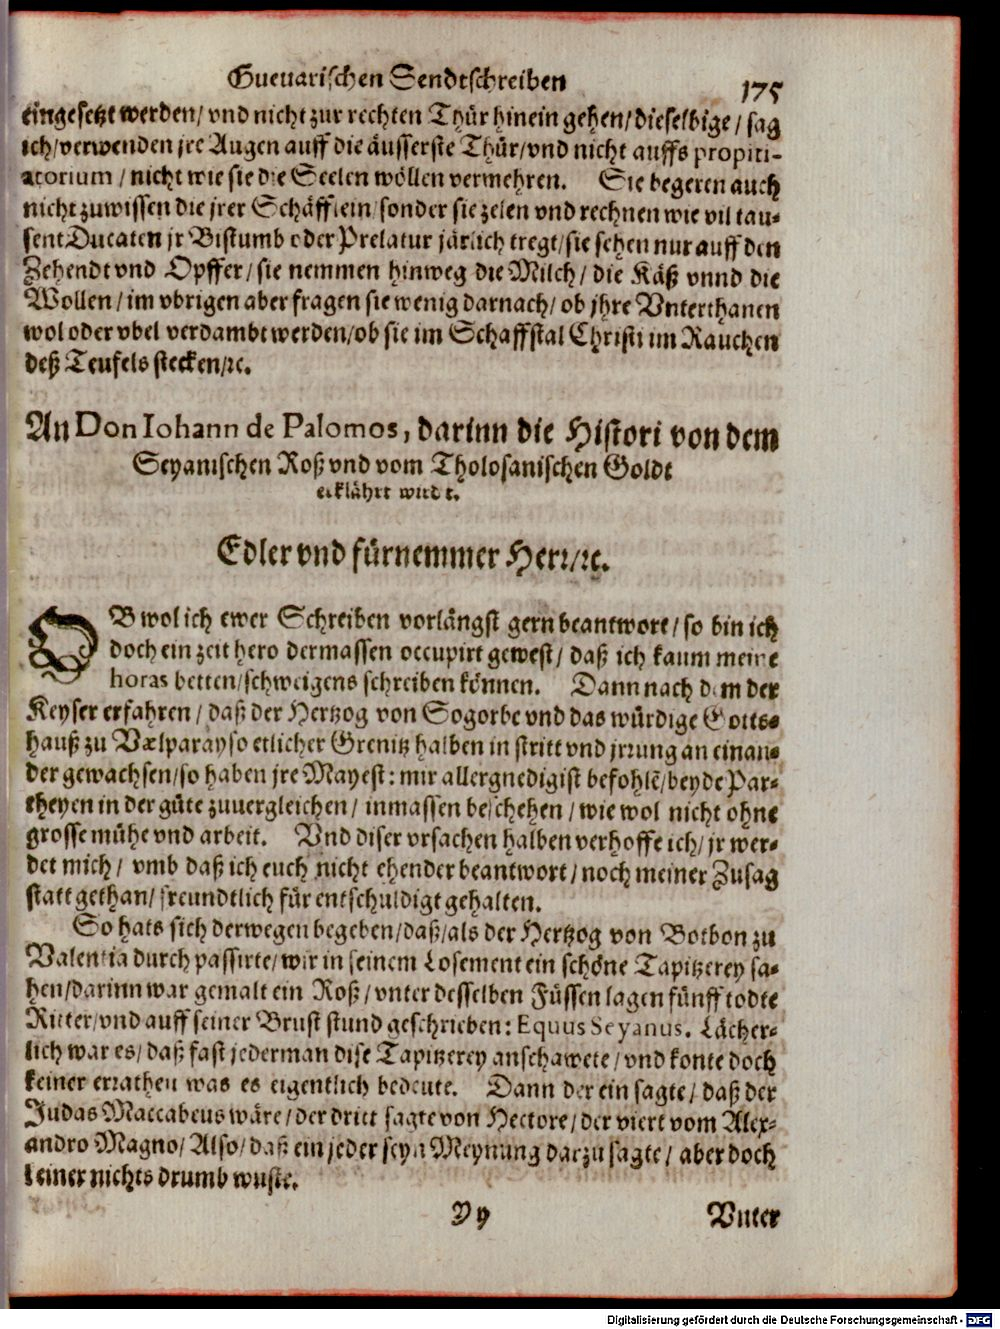 Gueuarischen Sendtschreiben
175
eingesetzt werden/ vnd nicht zur rechten Thür hinein gehen/ dieselbige/ sag
ich/ verwenden jre Augen auff die äusserste Thür/ vnd nicht auffs propiti-
atorium/ nicht wie sie die Seelen wöllen vermehren. Sie begeren auch
nicht zuwissen die jrer Schäfflein/ sonder sie zelen vnd rechnen wie vil tau-
sent Ducaten jr Bistumb oder Prelatur järlich tregt/ sie sehen nur auff den
Zehendt vnd Opffer/ sie nemmen hinweg die Milch/ die Käß vnnd die
Wollen/ im vbrigen aber fragen sie wenig darnach/ ob jhre Vnterthanen
wol oder vbel verdambt werden/ ob sie im Schaffstal Christi im Rauchen
deß Teufels stecken/ꝛc.
An Don Iohann de Palomos, darinn die Histori von dem
Seyanischen Roß vnd vom Tholosanischen Goldt
erklährt wirdt.
Edler vnd fürnemmer Herr/ꝛc.
OB wol ich ewer Schreiben vorlängst gern beantwort/ so bin ich
doch ein zeit hero dermassen occupirt gewest/ daß ich kaum meine
horas betten/ schweigens schreiben können. Dann nach dem der
Keyser erfahren/ daß der Hertzog von Sogorbe vnd das würdige Gotts-
hauß zu Vælparayso etlicher Grenitz halben in stritt vnd jrrung an einan-
der gewachsen/ so haben jre Mayest: mir allergnedigist befohlē/ beyde Par-
theyen in der güte zuuergleichen/ inmassen beschehen/ wie wol nicht ohne
grosse mühe vnd arbeit. Vnd diser vrsachen halben verhoffe ich/ jr wer-
det mich/ vmb daß ich euch nicht ehender beantwort/ noch meiner Zusag
statt gethan/ freundtlich für entschuldigt gehalten.
So hats sich derwegen begeben/ daß/ als der Hertzog von Botbon zu
Valentia durch passirte/ wir in seinem Losement ein schöne Tapitzerey sa-
hen/ darinn war gemalt ein Roß/ vnter desselben Füssen lagen fünff todte
Ritter/ vnd auff seiner Brust stund geschrieben: Equus Seyanus. Lächer-
lich war es/ daß fast jederman dise Tapitzerey anschawete/ vnd konte doch
keiner errathen was es eigentlich bedeute. Dann der ein sagte/ daß der
Judas Maccabeus wäre/ der dritt sagte von Hectore/ der viert vom Alex-
andro Magno/ Also/ daß ein jeder seyn Meynung darzu sagte/ aber doch
keiner nichts drumb wuste.
Yy
Vnter
Digitalisierung gefördert durch die Deutsche Forschungsgemeinschaft - DFG